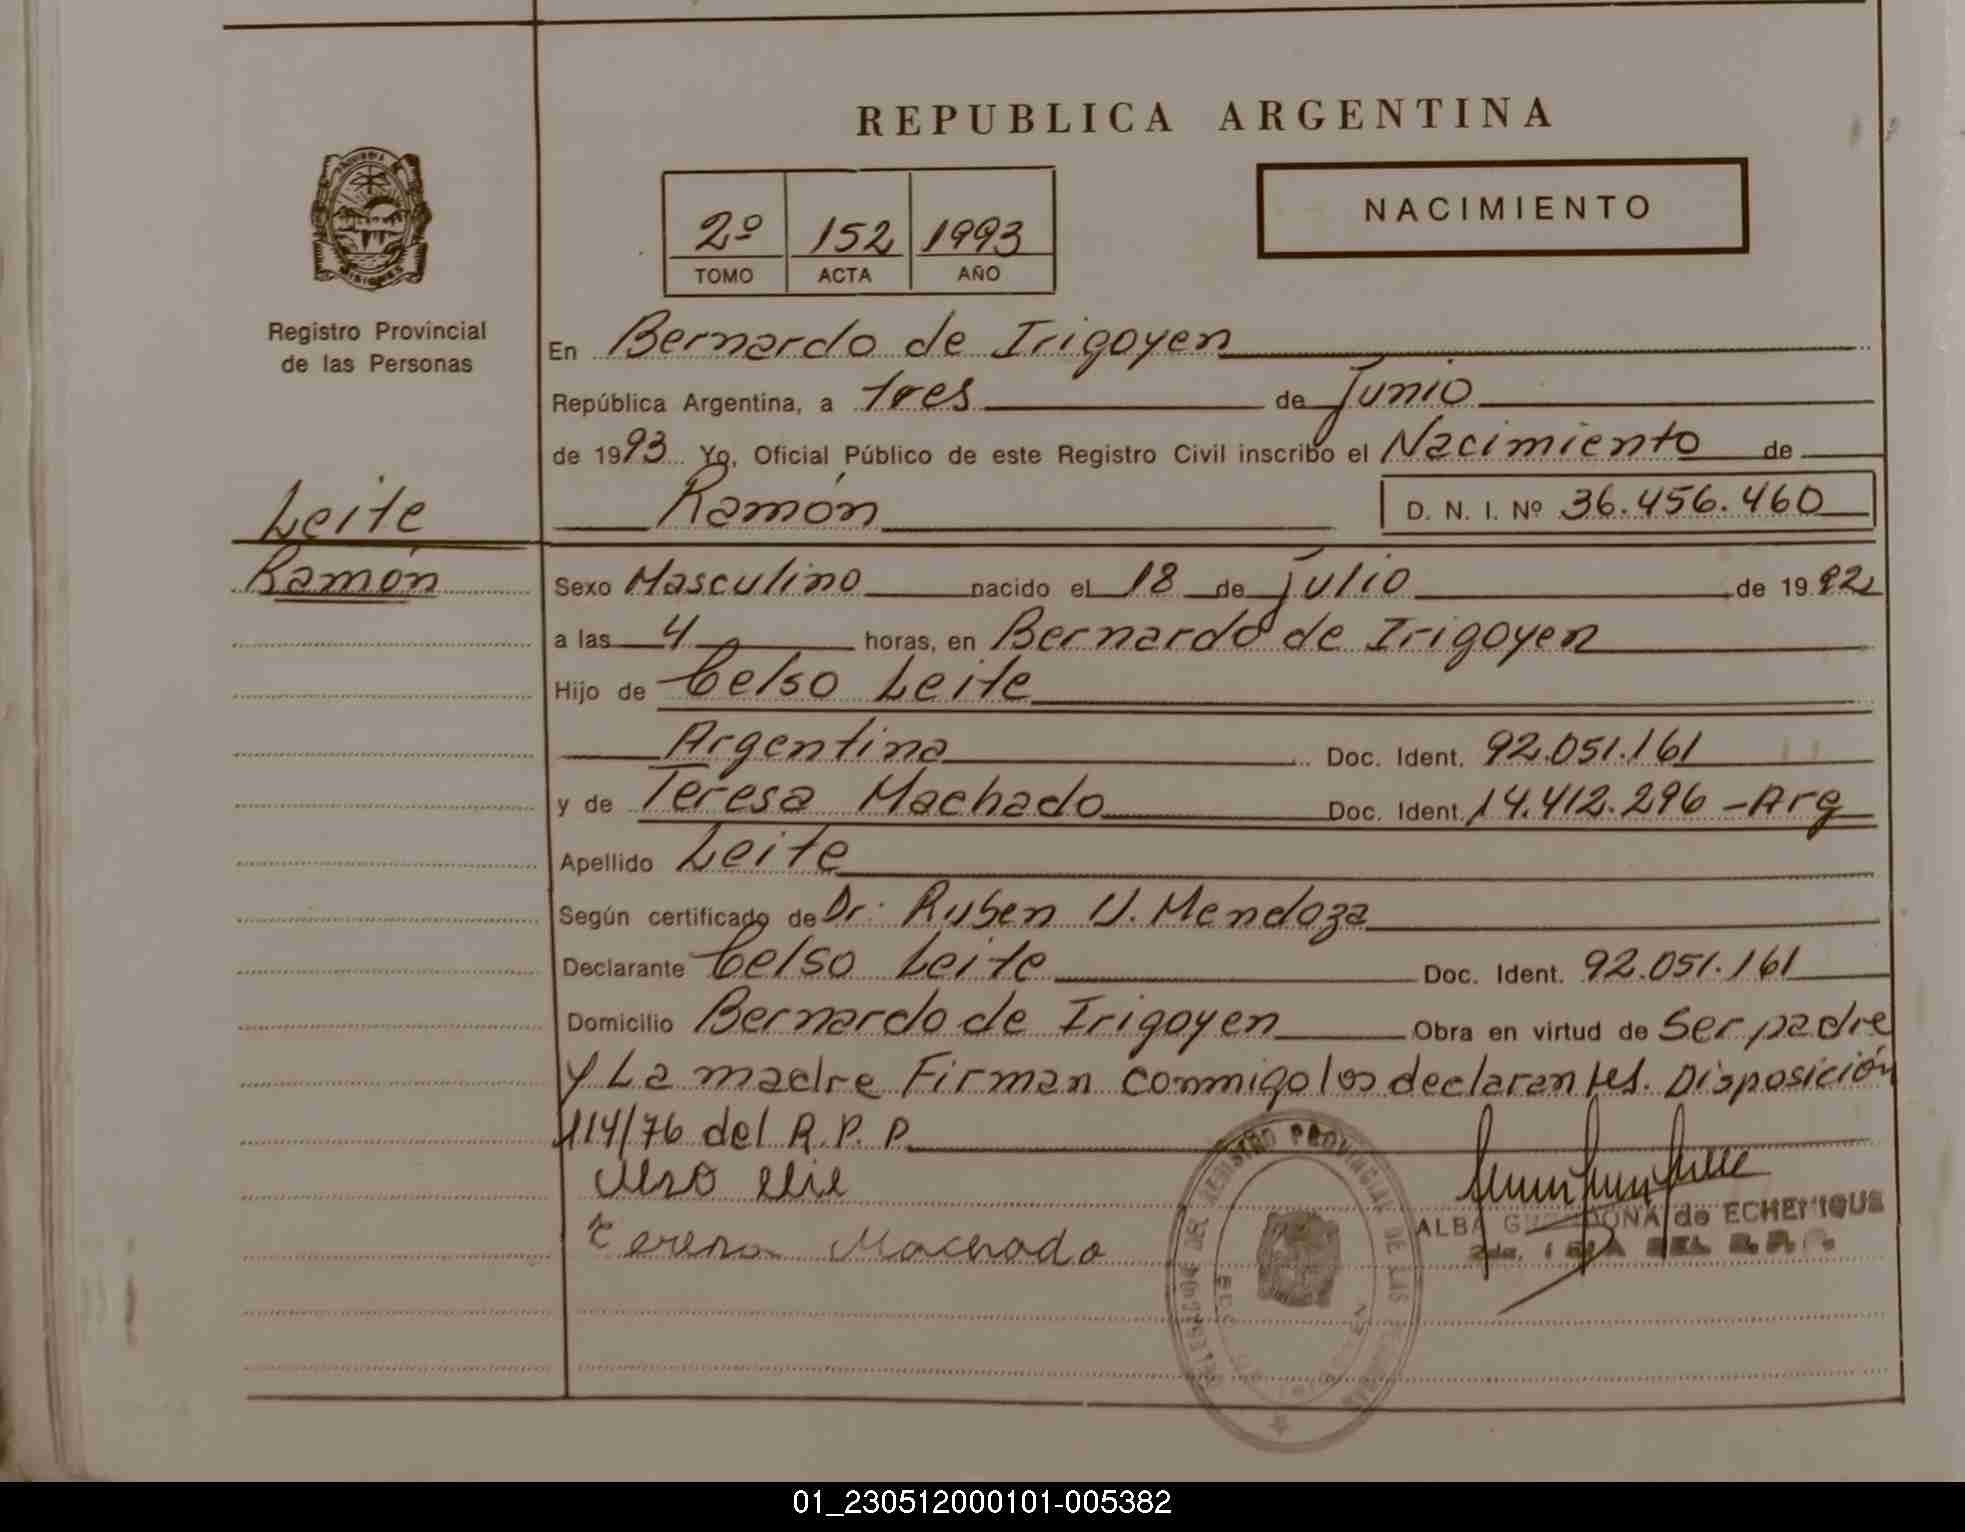 REPUBLICA ARGENTINA
2º 152 1993
TOMO ACTA AÑO
NACIMIENTO
MISIONES
Registro Provincial
de las Personas
Leite
Ramón
En Bernardo de Irigoyen
República Argentina, a tres de Junio
de 1993 Yo, Oficial Público de este Registro Civil inscribo el Nacimiento de
Ramón D. N. I. Nº 36.456.460
Sexo Masculino nacido el 18 de Julio de 1992
a las 4 horas, en Bernardo de Irigoyen
Hijo de Celso Leite
Argentina Doc. Ident. 92.051.161
y de Teresa Machado Doc. Ident. 14.412.296 - Arg
Apellido Leite
Según certificado de Dr. Ruben U. Mendoza
Declarante Celso Leite Doc. Ident. 92.051.161
Domicilio Bernardo de Irigoyen Obra en virtud de Ser padre
y La madre Firman conmigo los declarantes. Disposición
114/76 del R.P.P.
Teresa Machado
REGISTRO PROVINCIAL DE LAS
ALBA de ECHENIQUE
01_230512000101-005382